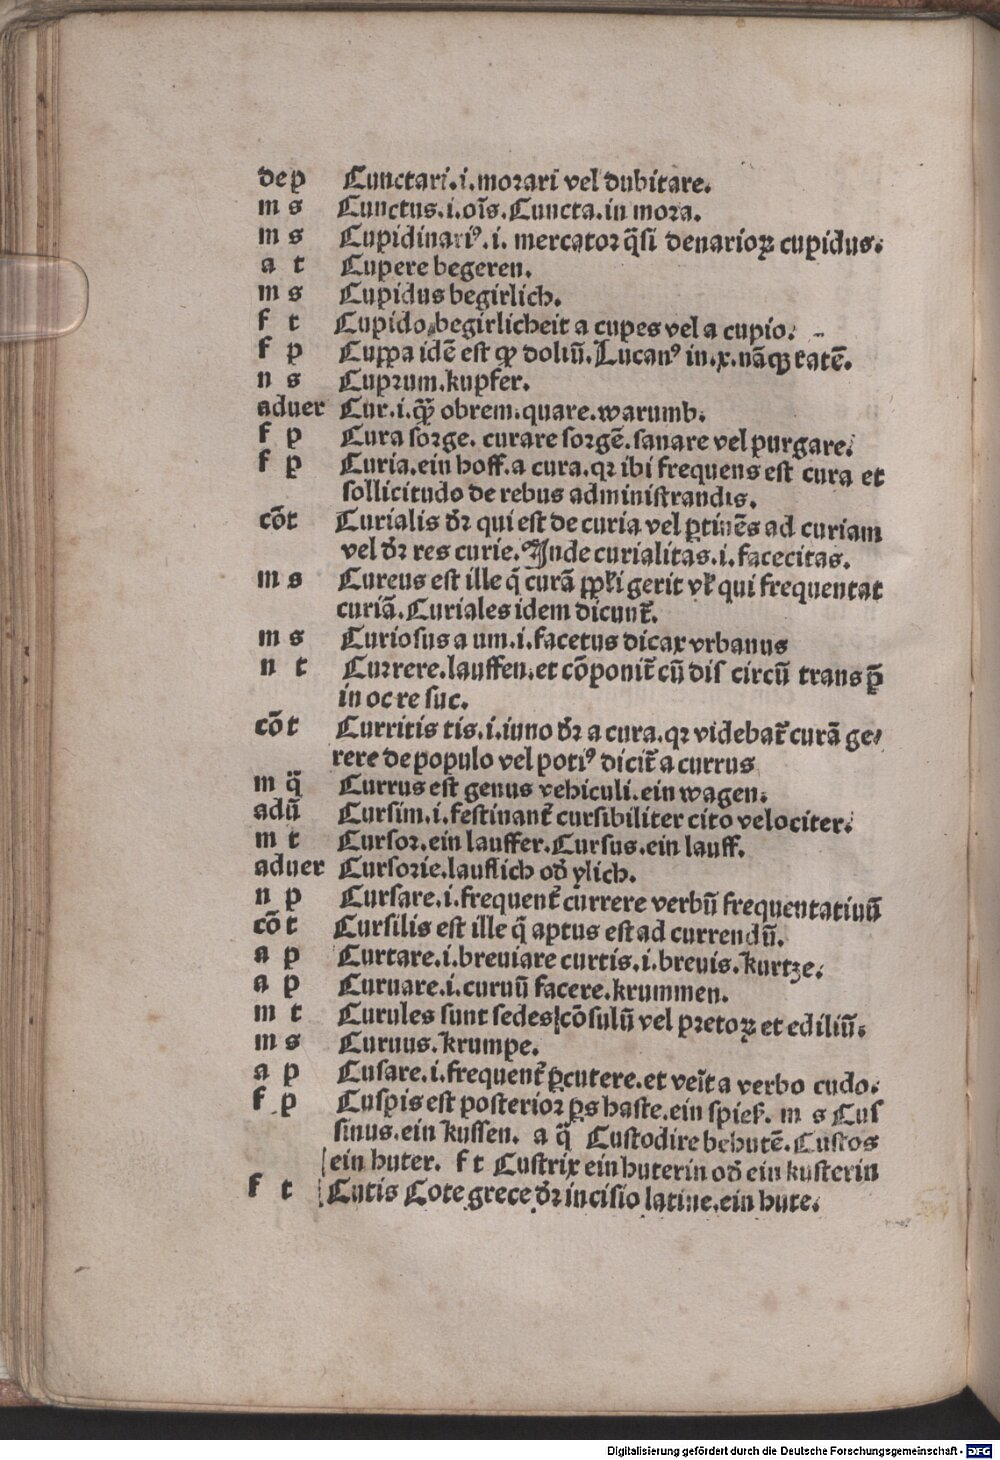 dep Cunctari.i.morari vel dubitare.
m s Cunctus.i.oĩs.Cuncta.in mora.
m s Cupidinariꝰ.i. mercator q̃si denarioꝝ cupidus.
a t Cupere begeren.
m s Cupidus begirlich.
f t Cupido.begirlicheit a cupes vel a cupio.
f p Cuppa idē est qꝫ doliū.Lucanꝰ in.x.nāqꝫ ratē.
n s Cuprum.kupfer.
aduer Cur.i.q̄ obrem.quare.warumb.
f p Cura sorge. curare sorgē.sanare vel purgare.
f p Curia.ein hoff.a cura.qꝛ ibi frequens est cura et
sollicitudo de rebus administrandis.
cōt Curialis dꝛ qui est de curia vel ꝑtinēs ad curiam
vel dꝛ res curie.Inde curialitas.i.facecitas.
m s Cureus est ille q̄ curā ppl̓i gerit vl̓ qui frequentat
curiā.Curiales idem dicunt̃.
m s Curiosus a um.i.facetus dicax vrbanus
n t Currere.lauffen.et cōponit̃ cū dis circū trans ꝑ
in oc re suc.
cōt Curritis tis.i.iuno dꝛ a cura.qꝛ videbat̃ curā ge/
rere de populo vel potiꝰ dicit̃ a currus
m q̈ Currus est genus vehiculi.ein wagen.
adū Cursim.i.festinant̃ cursibiliter cito velociter.
m t Cursor.ein lauffer.Cursus.ein lauff.
aduer Cursorie.lauflich od̓ ylich.
n p Cursare.i.frequent̃ currere verbū frequentatiuū
cōt Cursilis est ille q̄ aptus est ad currendū.
a p Curtare.i.breuiare curtis.i.breuis.kurtze.
a p Curuare.i.curuū facere.krummen.
m t Curules sunt sedes cōsulū vel pretoꝝ et ediliū.
m s Curuus.krumpe.
a p Cusare.i.frequent̃ ꝑcutere.et veĩt a verbo cudo.
f p Cuspis est posterior ꝑs haste.ein spieß. m s Cus
sinus.ein kussen. a q̈ Custodire behutē.Custos
ein huter. f t Custrix ein huterin od̓ ein kusterin
f t Cutis Cote grece dꝛ incisio latine.ein hute.
Digitalisierung gefördert durch die Deutsche Forschungsgemeinschaft - DFG